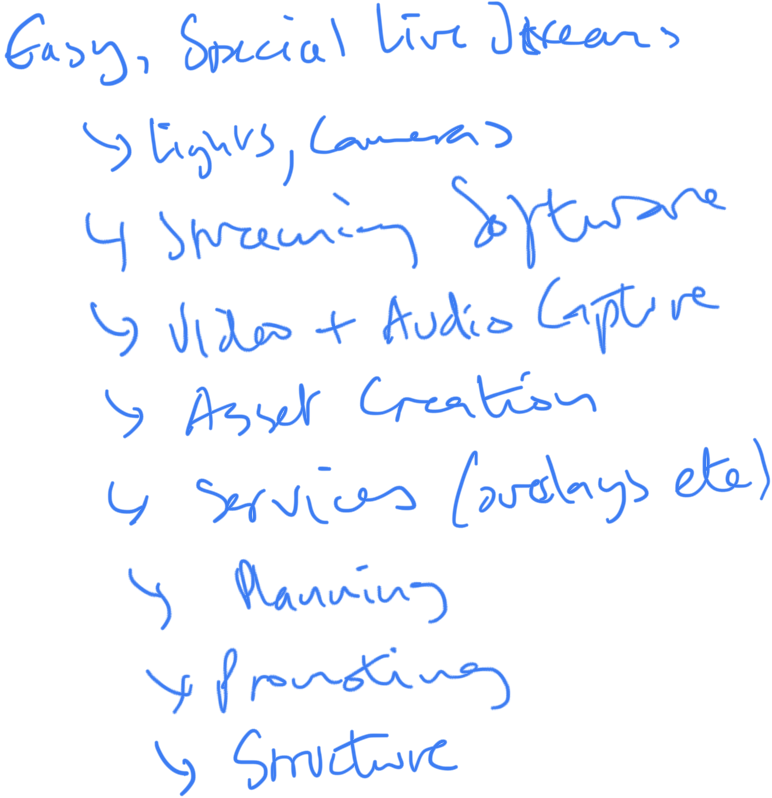 Easy, Special Live Streams
↳ Lights, Cameras
↳ Streaming Software
↳ Video + Audio Capture
↳ Asset Creation
↳ Services (overlays etc)
↳ Planning
↳ Promoting
↳ Structure